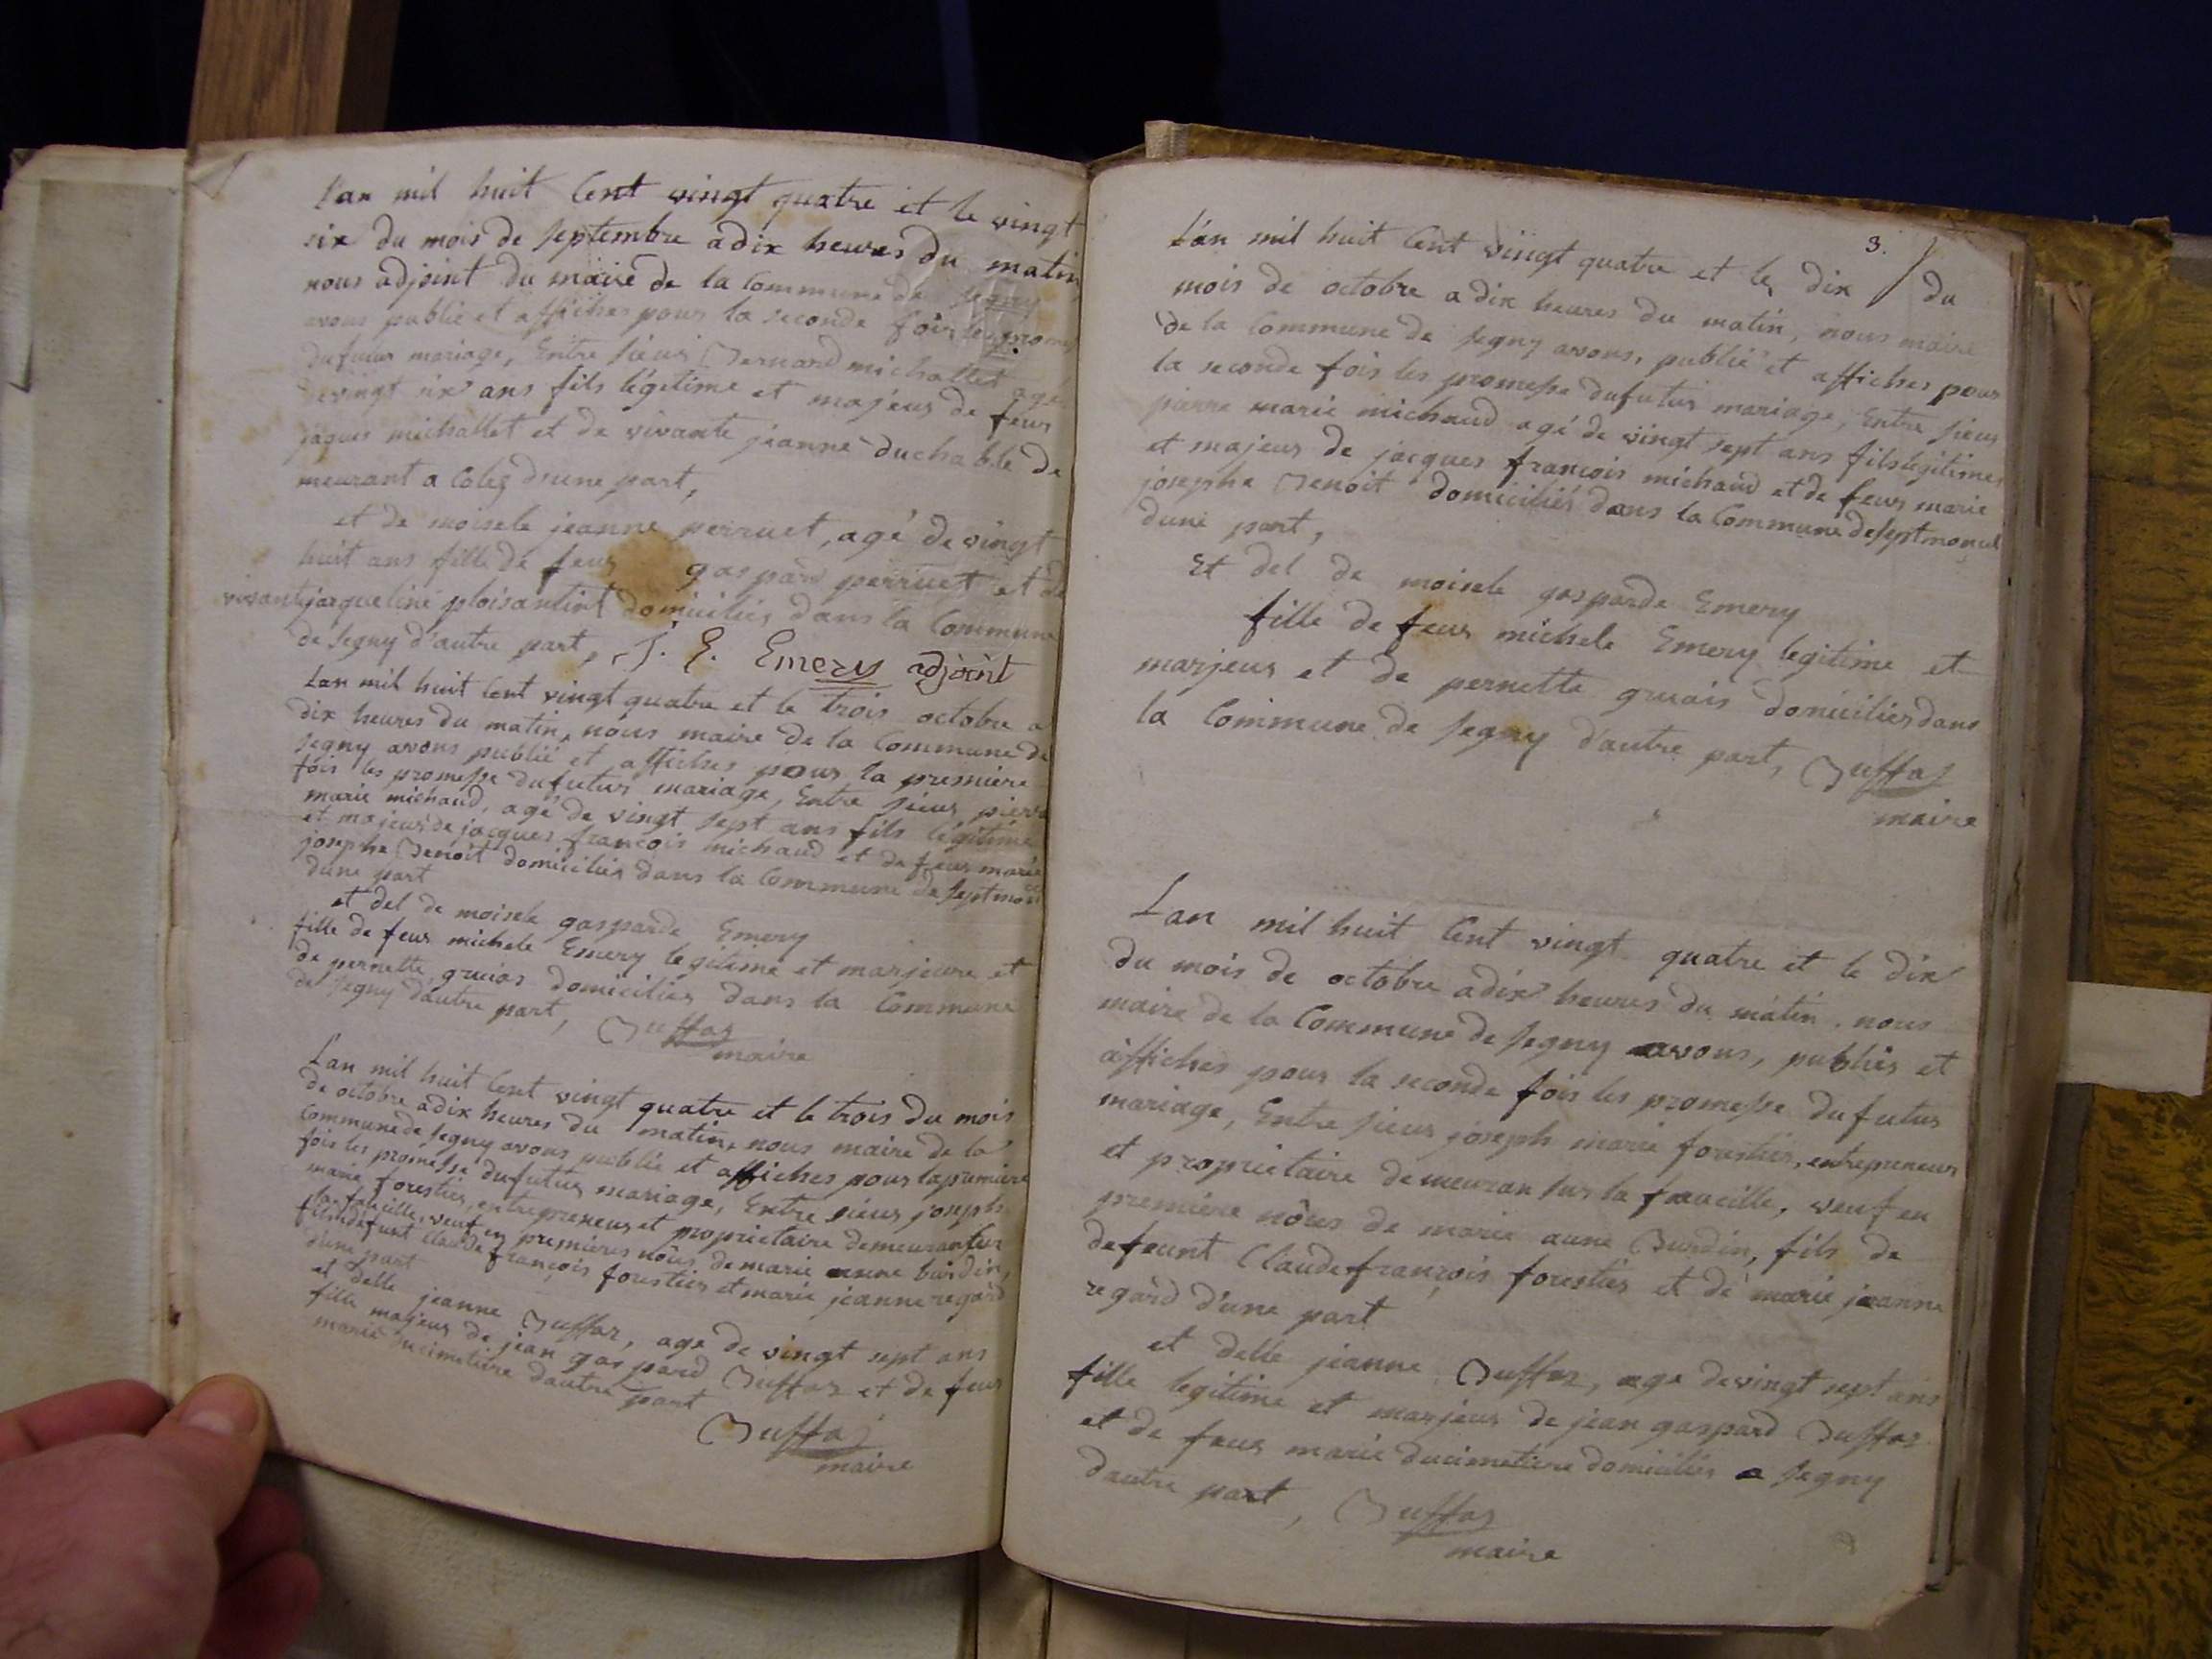 l'an mil huit Cent vingt quatre et le vingt
six du mois de septembre a dix heures du matin
nous adjoint du maire de la Commune de Segny
avons publié et affiches pour la seconde fois les prom
du futur mariage, Entre sieur Bernard michallet agé
de vingt six ans fils légetime et majeur de feur
jaques michallet et de vivante jeanne duchable de
meurant a Colez d'une part,
et de moisele jeanne perruet, agé de vingt
huit ans fille de feur gaspard perruet et de
vivant jacqueline domiciliés dans la Commune
de Segny d'autre part, J. E. Emery adjoint
Lan mil huit Cent vingt quatre et le trois octobre a
dix heures du matin, nous maire de la Commune de
Segny avons publié et affiches pour la première
fois les promesse du futur mariage, Entre sieur pierre
marie michaud, agé de vingt sept ans fils légitime
et majeur de jacques francois michaud et de feur marie
josephe Benoit domiciliés dans la Commune de Septmon
dune part
et del de moisele gasparde Emery
fille de feur michele Emery legitime et marjeure et
de pernette domiciliés dans la Commune
de Segny dautre part, Buffaz
maire
L'an mil huit Cent vingt quatre et le trois du mois
de octobre a dix heures du matin, nous maire de la
Commune de Segny avons publié et affiches pour la premiere
fois les promesse du futur mariage, Entre sieur joseph
marie forestier, entrepreneur et propriétaire demeuran sur
la faucille, veuf en premieres nôus de marie anne burdin,
fils de defunt Claude françois forestier et marie jeanne regard
d'une part
et delle jeanne Buffaz, age de vingt sept ans
fille majeur de jean gaspard Buffaz et de feur
marie ducimetiere dautre part
Buffaz
maire
3.
L'an mil huit Cent vingt quatre et le dix du
mois de octobre a dix heures du matin, nous maire
de la Commune de Segny avons, publié et affiches pour
la seconde fois les promesse du futur mariage, Entre sieur
pierre marie michaud agé de vingt sept ans fils legitime
et majeur de jacques françois michaud et de feur marie
josephe Benoit domiciliés dans la Commune de Septmoncel
dune part,
Et del de moisele gasparde Emery
fille de feur michele Emery legitime et
marjeur et de pernette domiciliés dans
la Commune de Segny d'autre part, Buffaz
maire
Lan mil huit Cent vingt quatre et le dix
du mois de octobre a dix heures du matin, nous
maire de la Commune de Segny avons, publiés et
affiches pour la seconde fois les promesse du futur
mariage, Entre sieur joseph marie forestier, entrepreneur
et propriétaire demeuran sur la faucille, veuf en
première nôus de marie anne Burdin, fils de
defeunt Claude françois forestier et de marie jeanne
regard d'une part
et delle jeanne Buffaz, age de vingt sept ans
fille legitime et marjeur de jean gaspard Buffaz
et de feur marie ducimetiere domiciliés a Segny
dautre part, Buffaz
maire